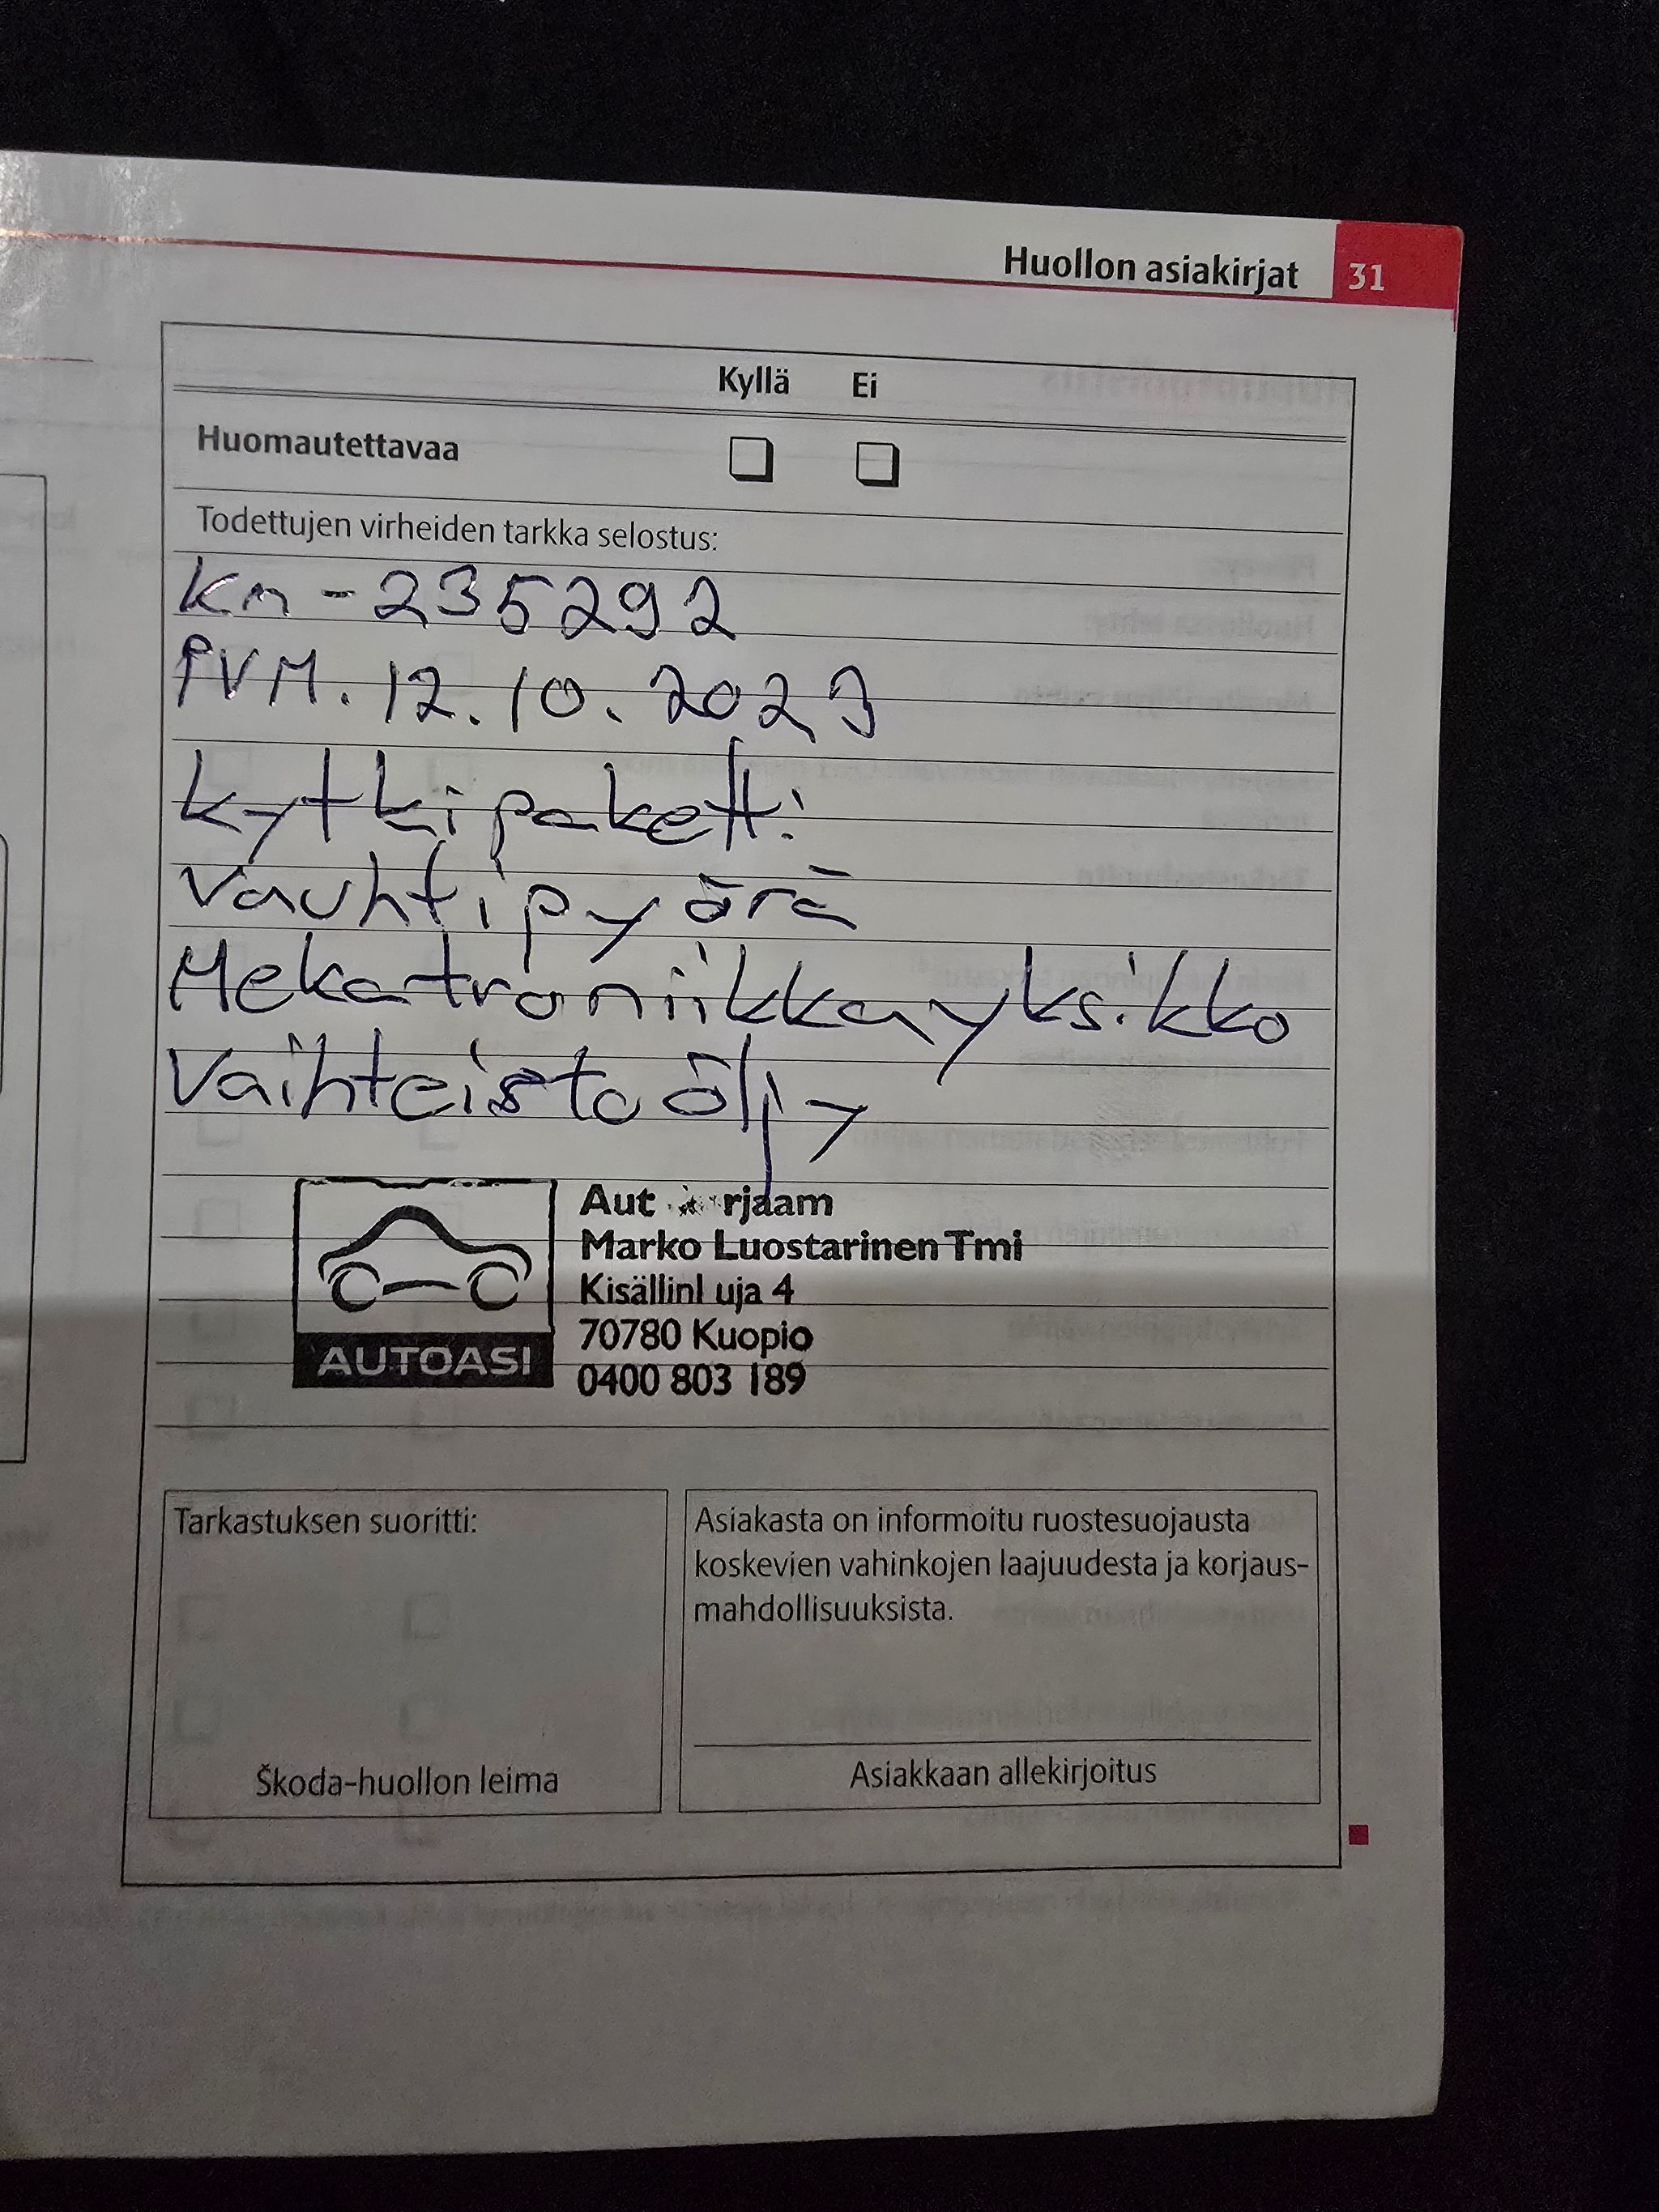 Huollon asiakirjat 31
Kyllä Ei
Huomautettavaa
Todettujen virheiden tarkka selostus:
Km - 235292
PVM. 12.10.2023
Kytkipaketti
Vauhtipyörä
Mekatroniikkayksikko
Vaihteistoöljy
Marko Luostarinen Tmi
70780 Kuopio
0400 803 189
AUTOASI
Tarkastuksen suoritti:
Škoda-huollon leima
Asiakasta on informoitu ruostesuojausta
koskevien vahinkojen laajuudesta ja korjaus-
mahdollisuuksista.
Asiakkaan allekirjoitus